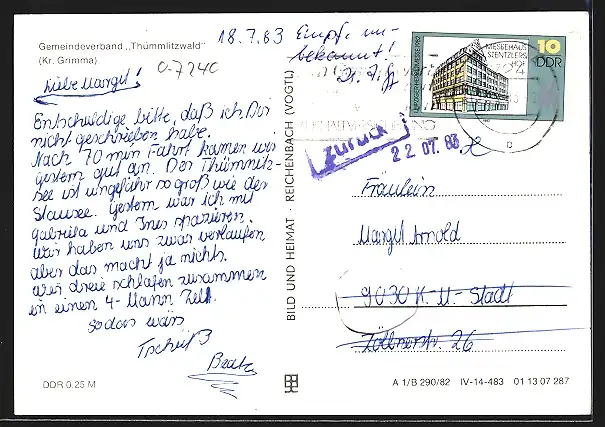 Gemeindeverband „Thümmlitzwald"
(Kr. Grimma)
O-7240
Liebe Margul!
Entschuldige bitte, daß ich Dir
nicht geschrieben habe.
Nach 70 min Fahrt kamen wir
gestern gut an. Der Thümmlitz-
see ist ungefähr so groß wie der
Stausee. Gestern war ich mit
Gabriela und Ines spazieren.
Wir haben uns zwar verlaufen
aber das macht ja nichts.
Wir dreie schlafen zusammen
in einen 4-Mann Zelt.
so das wärs
Tschüß
Beate
DDR 0.25 M
BILD UND HEIMAT · REICHENBACH (VOGTL)
18.7.83 Empf. un-
bekannt!
MESSEHAUS
STENTZLERS
HOF
10
DDR
zurück
22. 07. 83
Fräulein
Margul Arnold
9030 K.-M.-Stadt
Zöllnerstr. 26
A 1/B 290/82 IV-14-483 01 13 07 287